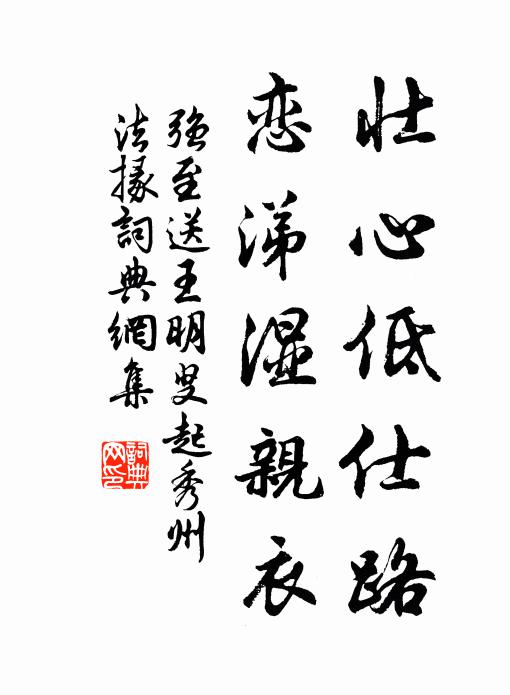 壮心低仕路
恋涕湿親衣
强至送王明叟起秀州
法掾詞典網集
詞典
网印